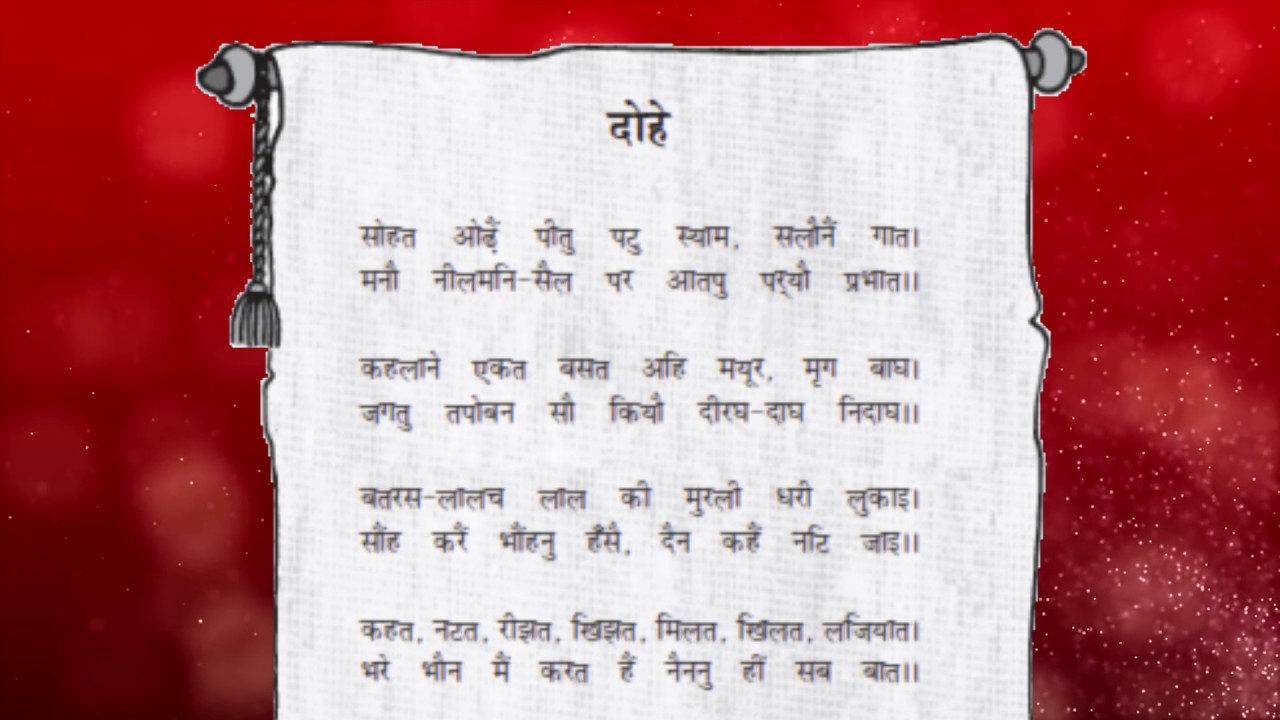 दोहे
सोहत ओढ़ैं पीतु पटु स्याम, सलौनैं गात।
मनौ नीलमनि-सैल पर आतपु पर्‌यौ प्रभात॥
कहलाने एकत बसत अहि मयूर, मृग बाघ।
जगतु तपोबन सौ कियौ दीरघ-दाघ निदाघ॥
बतरस-लालच लाल की मुरली धरी लुकाइ।
सौंह करैं भौंहनु हँसै, दैन कहैं नटि जाइ॥
कहत, नटत, रीझत, खिझत, मिलत, खिलत, लजियात।
भरे भौन मैं करत हैं नैननु हीं सब बात॥